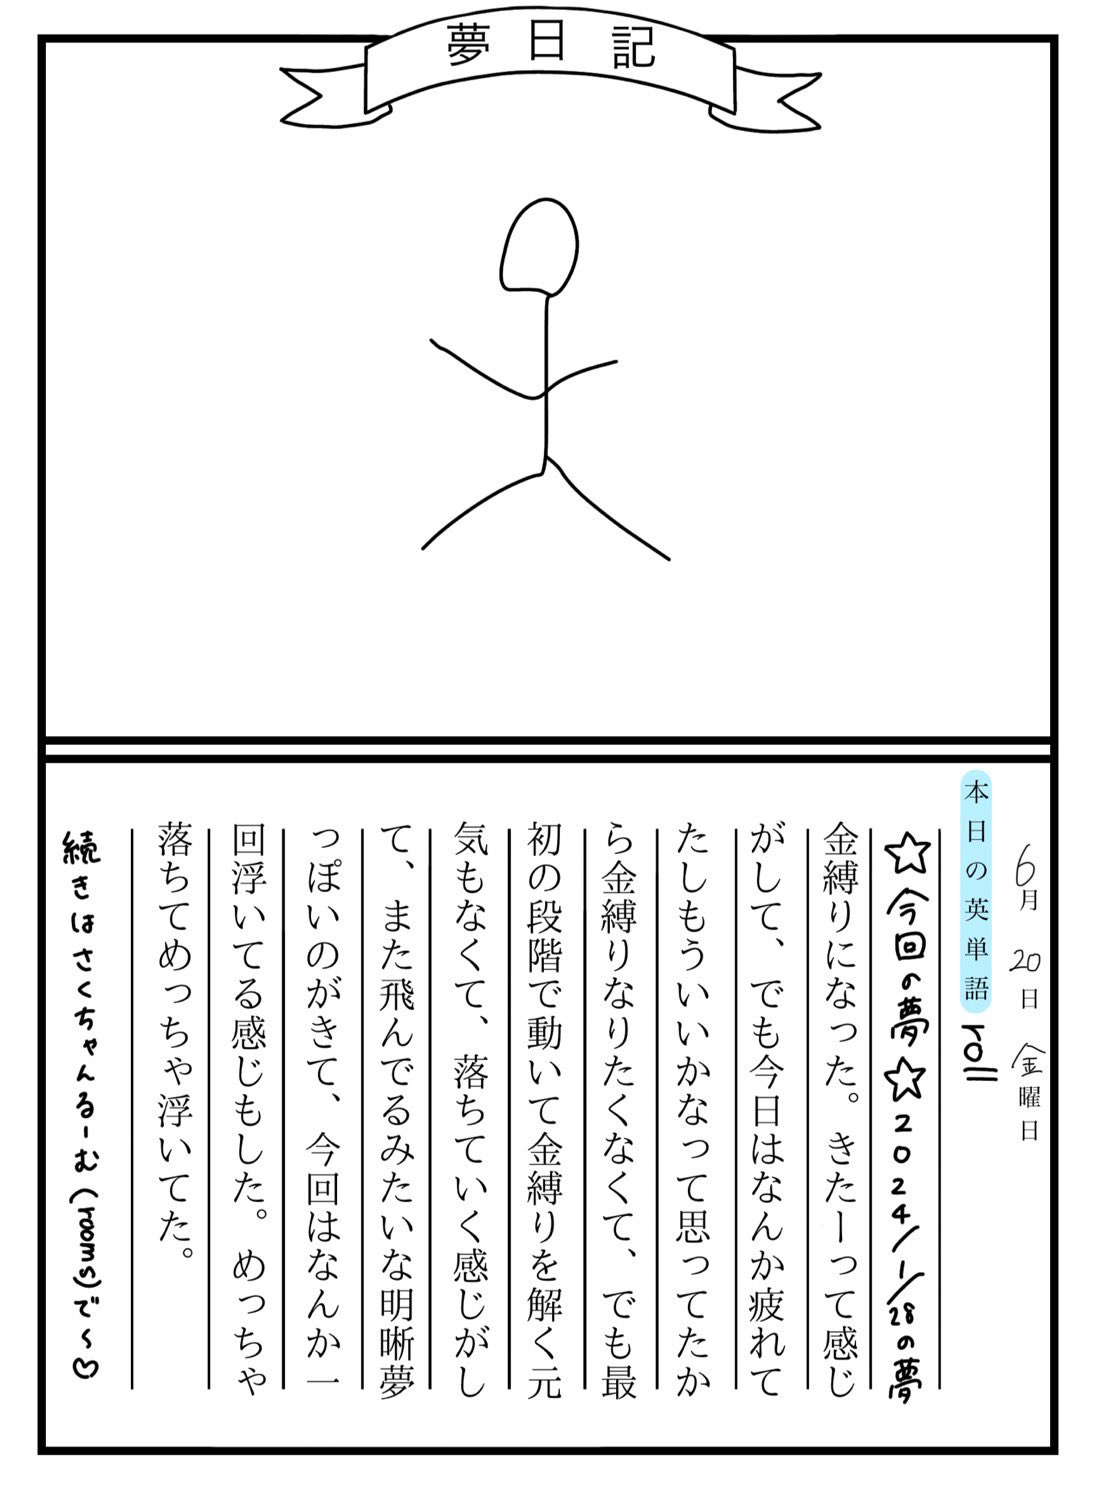 夢日記
6月 20日 金曜日
本日の英単語 roll
☆今回の夢☆2024/1/28の夢
金縛りになった。きたーって感じ
がして、でも今日はなんか疲れて
たしもういいかなって思ってたか
ら金縛りなりたくなくて、でも最
初の段階で動いて金縛りを解く元
気もなくて、落ちていく感じがし
て、また飛んでるみたいな明晰夢
っぽいのがきて、今回はなんか一
回浮いてる感じもした。めっちゃ
落ちてめっちゃ浮いてた。
続きはさくちゃんるーむ(rooms)で〜♡